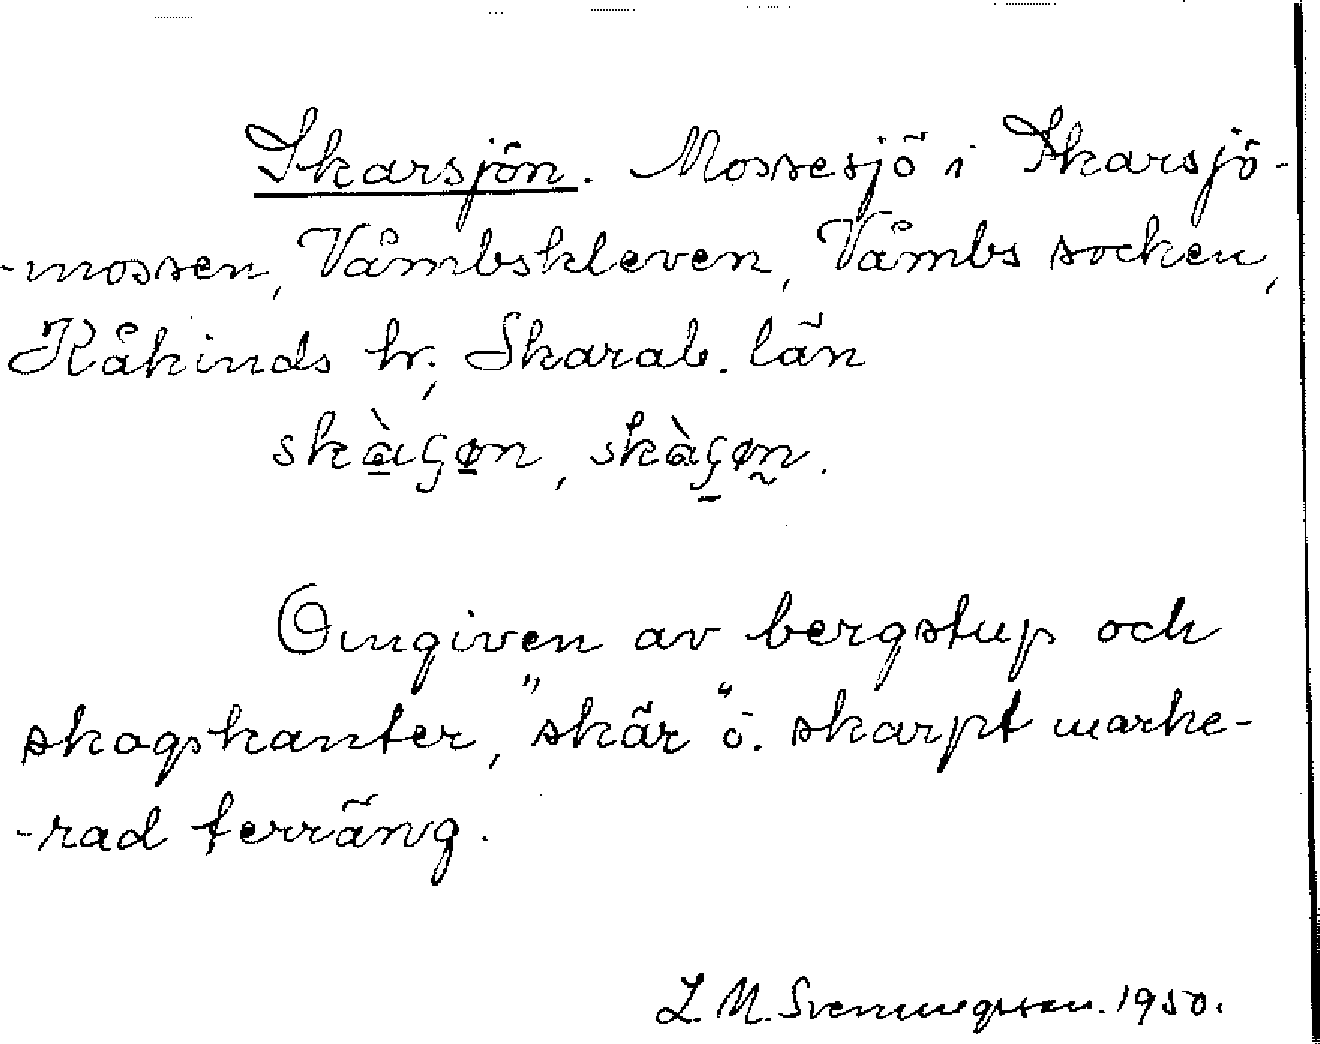 Skarsjön. Mossesjö i Skarsjö-
-mossen, Våmbskleven, Våmbs socken,
Kåkinds hr., Skarab. län
skàʂøn, skàʂøn.
Omgiven av bergstup och
skogskanter, "skär" o. skarpt marke-
-rad terräng.
L. M. Svenungsson. 1950.